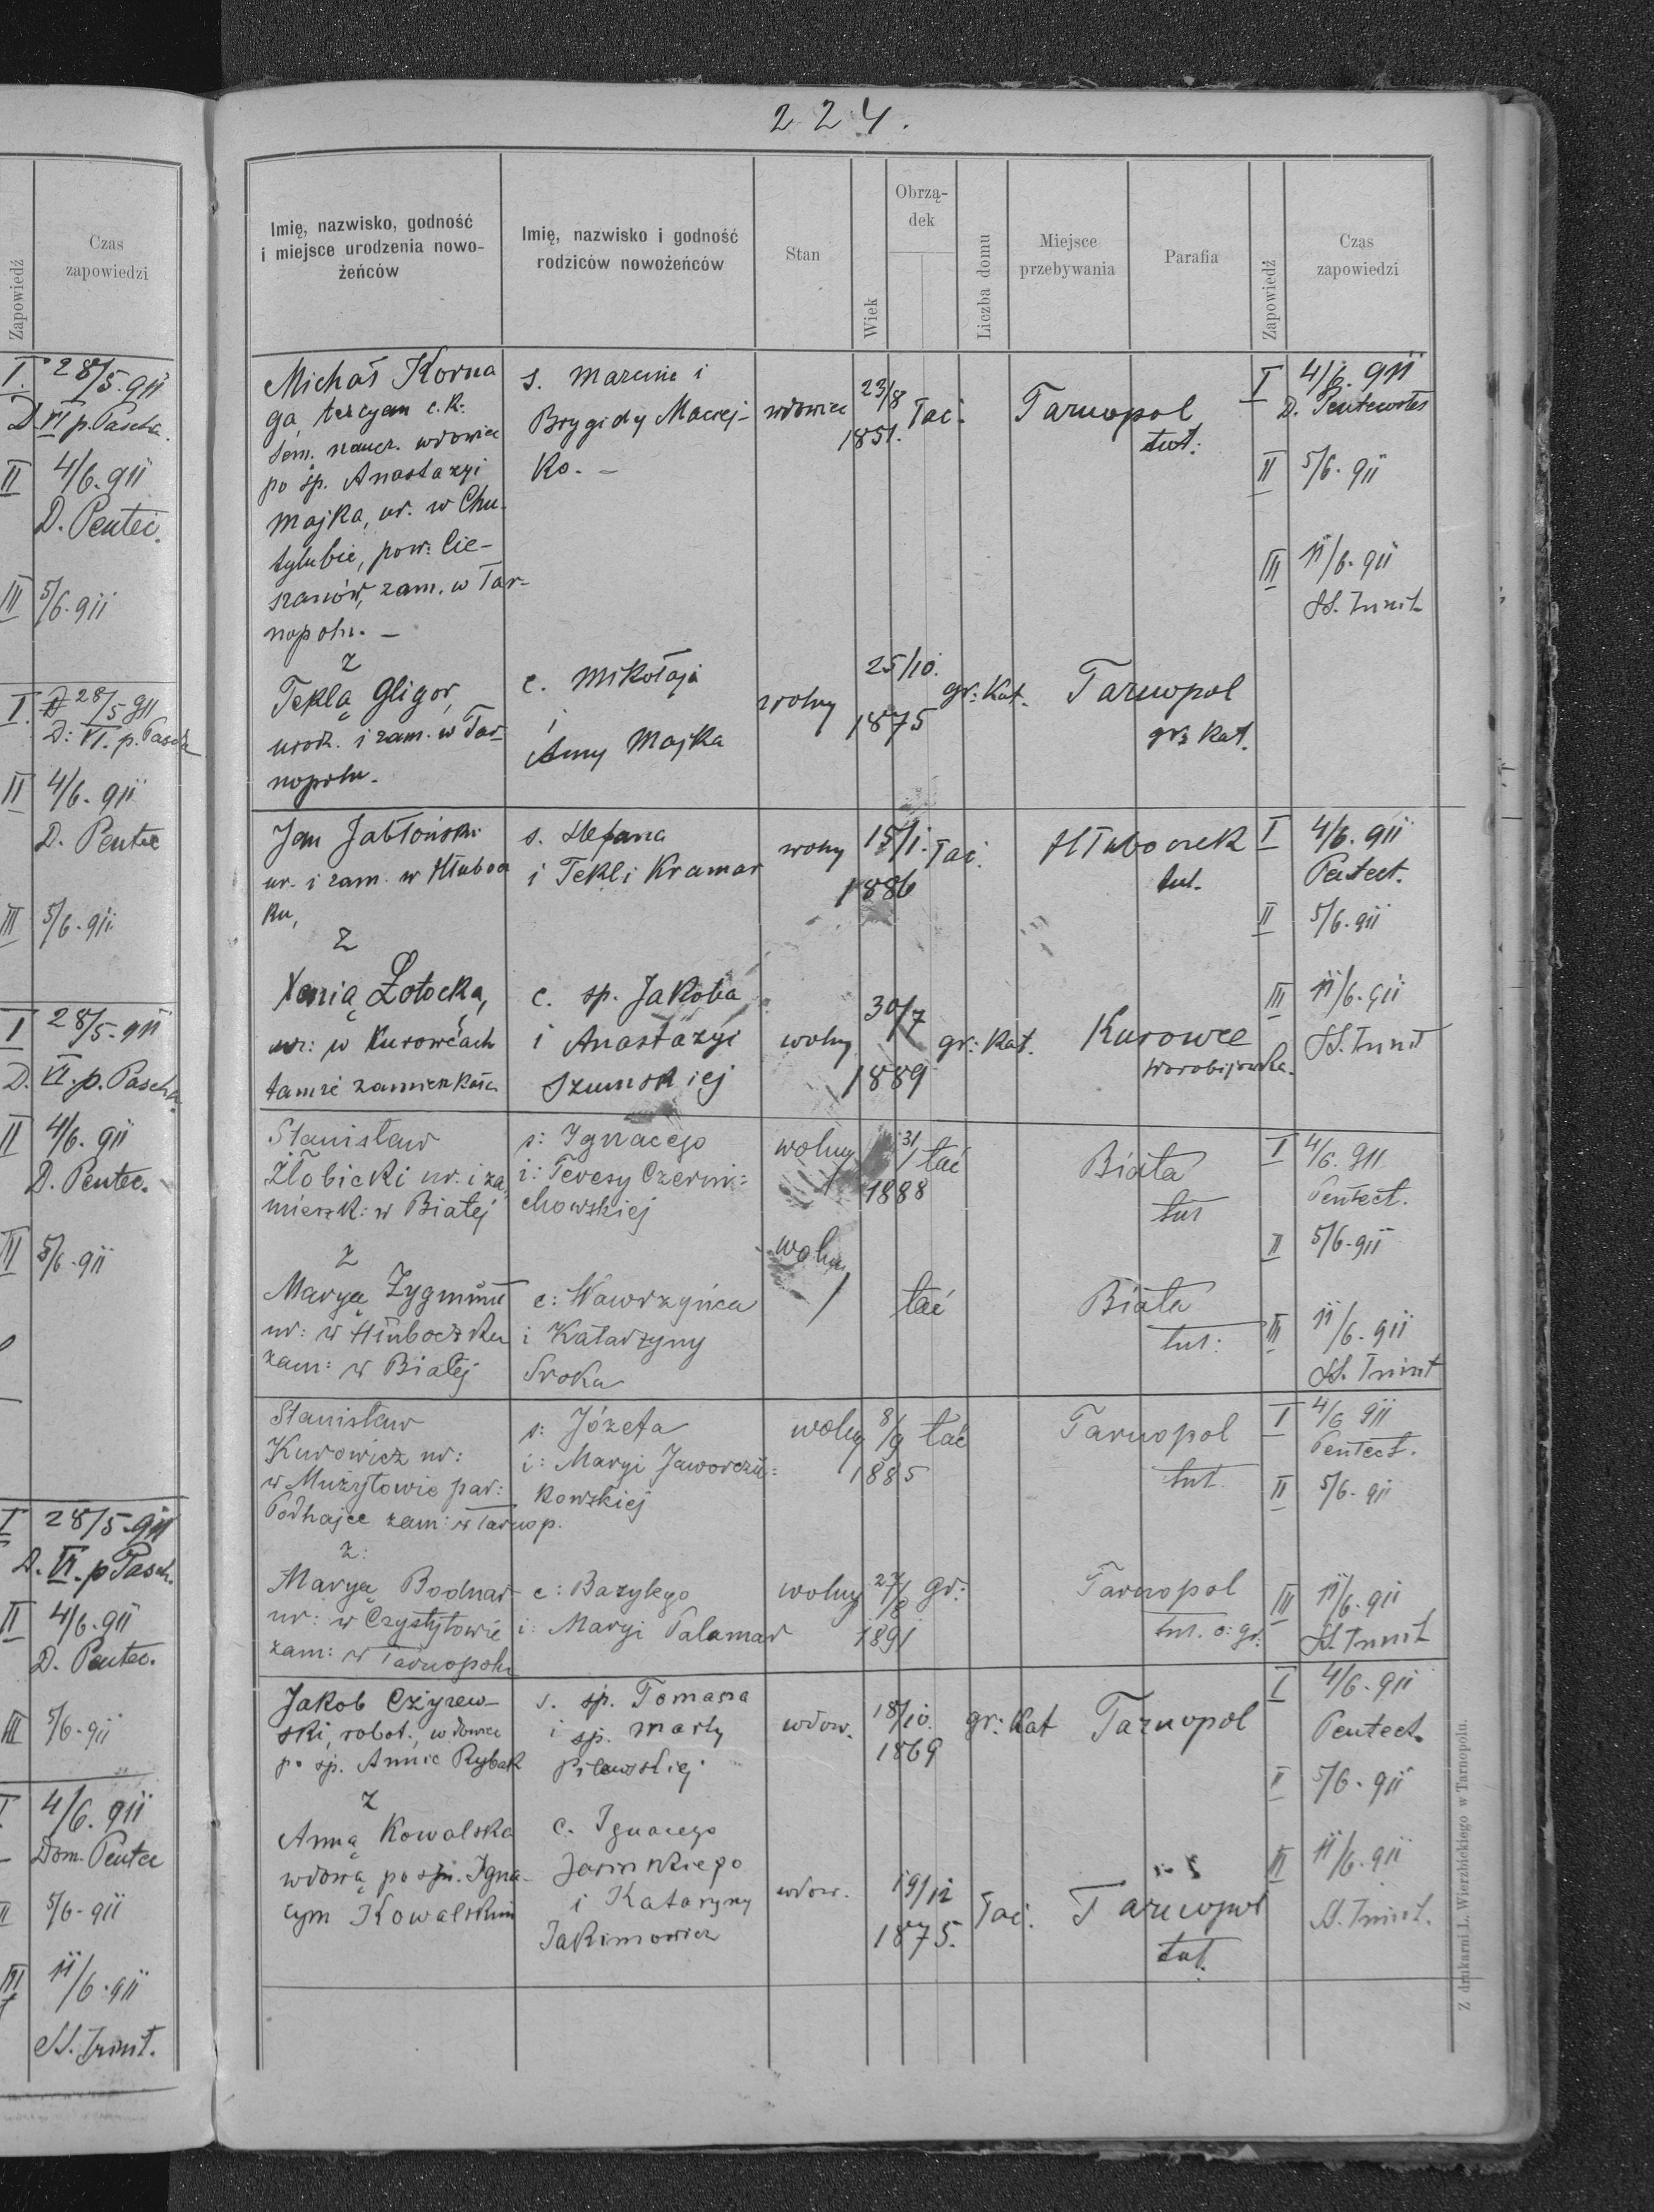 224.
Czas
zapowiedzi
Zapowiedź
I. 28/5.911
D. VI p. Pascha.
II 4/6.911
D. Pentec.
III 5/6.911
I. 28/5 911
D: VI. p. Pascha
II 4/6.911
D. Pentec
III 5/6.911
I 28/5.911
D. VI. p. Pascha
II 4/6.911
D. Pentec.
III 5/6.911
I 28/5.911
D. VI. p Pasch.
II 4/6.911
D. Pentec.
III 5/6.911
I 4/6.911
Dom. Pentec
II 5/6.911
III 11/6.911
SS. Trinit.
Imię, nazwisko, godność
i miejsce urodzenia nowo-
żeńców
Imię, nazwisko i godność
rodziców nowożeńców
Stan
Wiek
Obrzą-
dek
Liczba domu
Miejsce
przebywania
Parafia
Zapowiedź
Czas
zapowiedzi
Michał Korna
ga, tercyan c.k.
sem. naucz. wdowiec
po śp. Anastazyi
Majka, ur. w Chu-
tylubie, pow. Cie-
szanów, zam. w Tar-
nopolu. –
z
Teklą Gligor,
urodz. i zam. w Tar-
nopolu.
s. Marcina i
Brygidy Maciej-
ko. –
c. Mikołaja
i
Anny Majka
wdowiec
23/8
1851.
łać.
Tarnopol
tut.
wolny
25/10.
1875
gr: kat.
Tarnopol
gr: kat.
I 4/6. 911
D. Pentecostes
II 5/6.911
III 11/6.911
SS. Trinit
Jan Jabłoński
ur. i zam. w Hłubocz
ku,
z
Xenią Łotocką,
ur: w Kurowcach
tamże zamieszkała
s. Stefana
i Tekli Kramar
c. śp. Jakóba
i Anastazyi
Szumskiej
wolny
15/1.
1886
łać.
Hłuboczek
tut.
wolny
30/7
1889
gr: kat.
Kurowce
Worobijówka.
I 4/6.911
Pentect.
II 5/6.911
III 11/6.911
SS. Trinit
Stanisław
Żłobicki ur. i za
mieszk: w Białej
z
Maryą Zygmunt
ur: w Hłuboczku
zam: w Białej
s: Ignacego
i: Teresy Czerni=
chowskiej
c: Wawrzyńca
i Katarzyny
Sroka
wolny
31/
1888
łać
Biała
tut
wolna
łać
Biała
tut:
I 4/6. 911
Pentect.
II 5/6.911
III 11/6.911
SS. Trinit
Stanisław
Kurowicz ur:
w Mużyłowie par:
Podhajce zam: w Tarnop.
z:
Maryą Bodnar
ur: w Czystyłowie
zam: w Tarnopolu
s: Józefa
i: Maryi Jaworczu=
kowskiej
c: Bazylego
i: Maryi Palamar
wolny
8/9
1885
łać
Tarnopol
tut.
wolny
27/8
1891
gr:
Tarnopol
tut. o: gr:
I 4/6 911
Pentect.
II 5/6. 911
III 11/6.911
SS. Trinit
Jakob Czyżew-
ski, robot., wdowiec
po śp. Annie Rybak
z
Anną Kowalska
wdową po śp. Igna-
cym Kowalskim
s. śp. Tomasza
i śp. Marty
Pilawskiej
c. Ignacego
i Katarzyny
Jakimowicz
wdow.
18/10.
1869
gr: kat
Tarnopol
wdow.
19/12
1875.
łać.
Tarnopol
tut.
I 4/6.911
Pentect.
II 5/6.911
III 11/6.911
SS. Trinit.
Z drukarni L. Wierzbickiego w Tarnopolu.